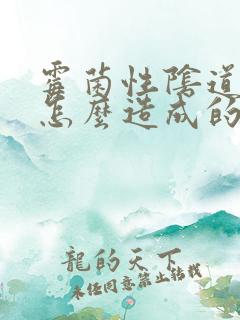 霉菌性陰道
怎麼造成的
龍的天下
未经同意禁止转载